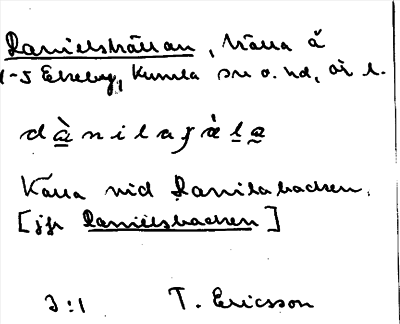 Danielskällan, Källa å
1-5 Ekeby, Kumla sn o. hd, Ör l.
dànilaçäla
Källa vid Danilabacken.
[jfr Danielsbacken]
3:1 T. Ericsson